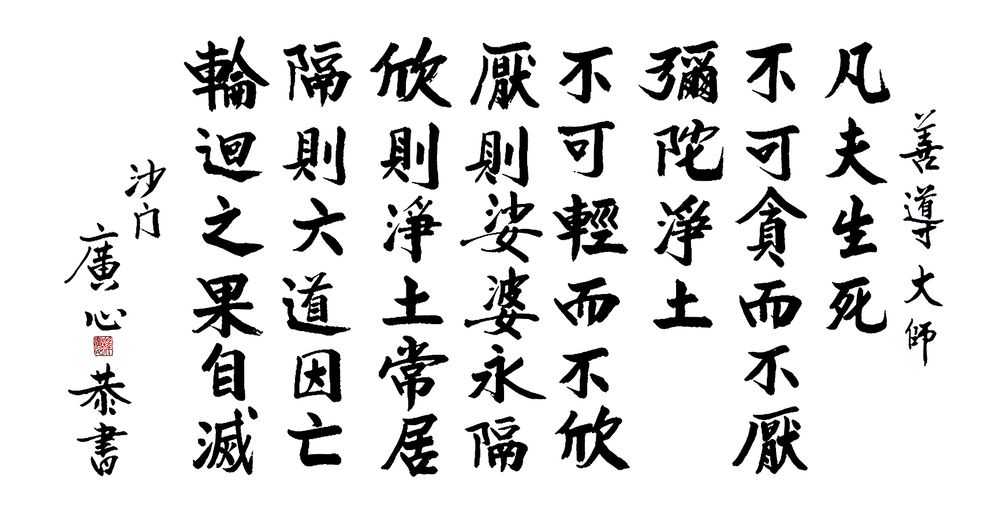 善導大師
凡夫生死
不可貪而不厭
彌陀淨土
不可輕而不欣
厭則娑婆永隔
欣則淨土常居
隔則六道因亡
輪迴之果自滅
沙门
廣心
恭書